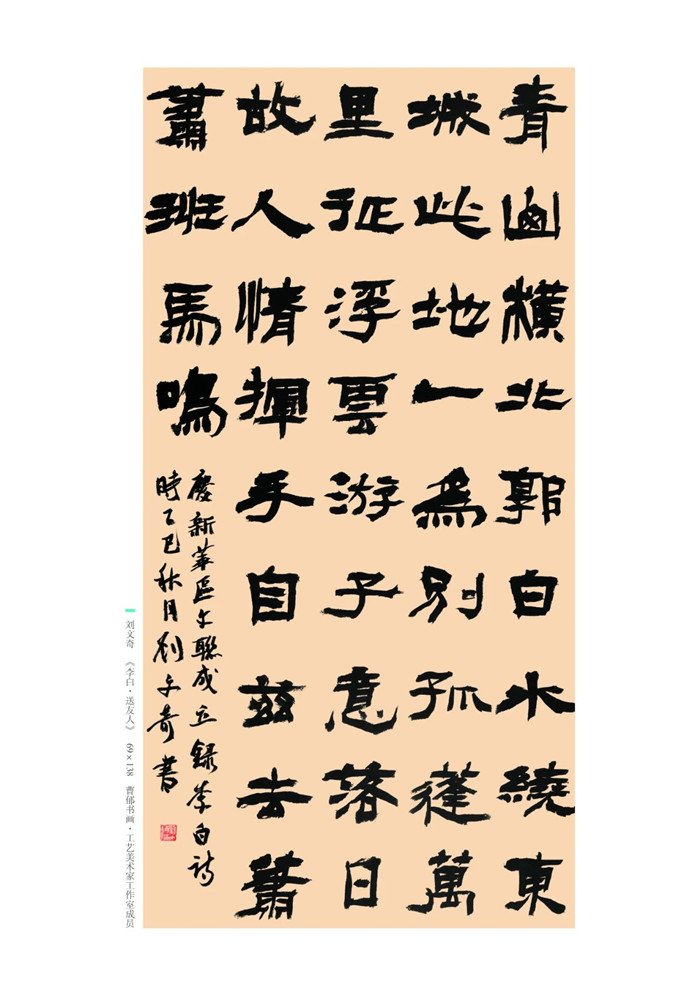 青山橫北郭白水繞東
城此地一爲別孤蓬萬
里征浮雲游子意落日
故人情揮手自茲去蕭
蕭班馬鳴
慶新華區文聯成立錄李白詩
時乙巳秋月刘文奇書
刘文奇 《李白·送友人》 69×138 曹郁书画·工艺美术家工作室成员